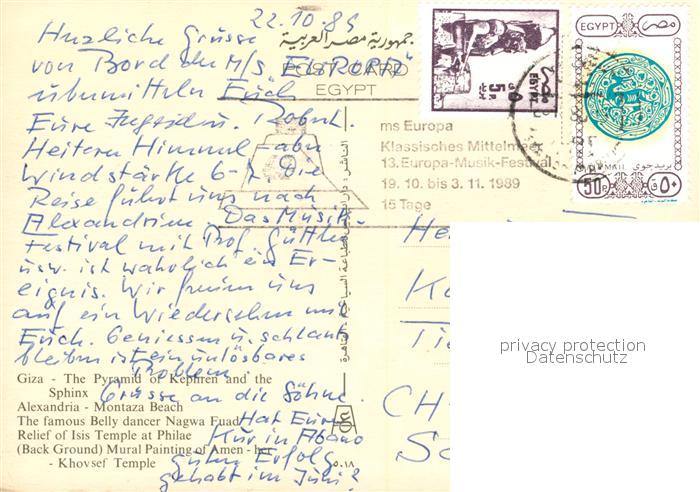 22.10.89
Herzliche Grüsse
von Bord der M/S EUROPA
übermitteln Euch
Eure Robert.
Heiterer Himmel aber
Windstärke 6-7. Die
Reise führt uns nach
Alexandrien. Das Musik-
Festival mit Prof. Güttler
usw. ist wahrlich ein Er-
eignis. Wir freuen uns
auf ein Wiedersehen mit
Euch. Geniessen u. schlank
bleiben ist ein unlösbares
Problem
Grüsse an die Söhne.
Hat Eure
Kur in Abano
guten Erfolg
gehabt im Juni?
جمهورية مصر العربية
POST CARD
EGYPT
5 P.
EGYPT
مصر
EGYPT مصر
بريد جوي
MAIL
50 P. ٥٠ ق
ms Europa
Klassisches Mittelmeer
13. Europa-Musik-Festival
19. 10. bis 3. 11. 1989
15 Tage
He
K
Ti
CH
S
privacy protection
Datenschutz
Giza - The Pyramid of Kephren and the
Sphinx
Alexandria - Montaza Beach
The famous Belly dancer Nagwa Fuad
Relief of Isis Temple at Philae
(Back Ground) Mural Painting of Amen - her
- Khovsef Temple
٥٠١٨